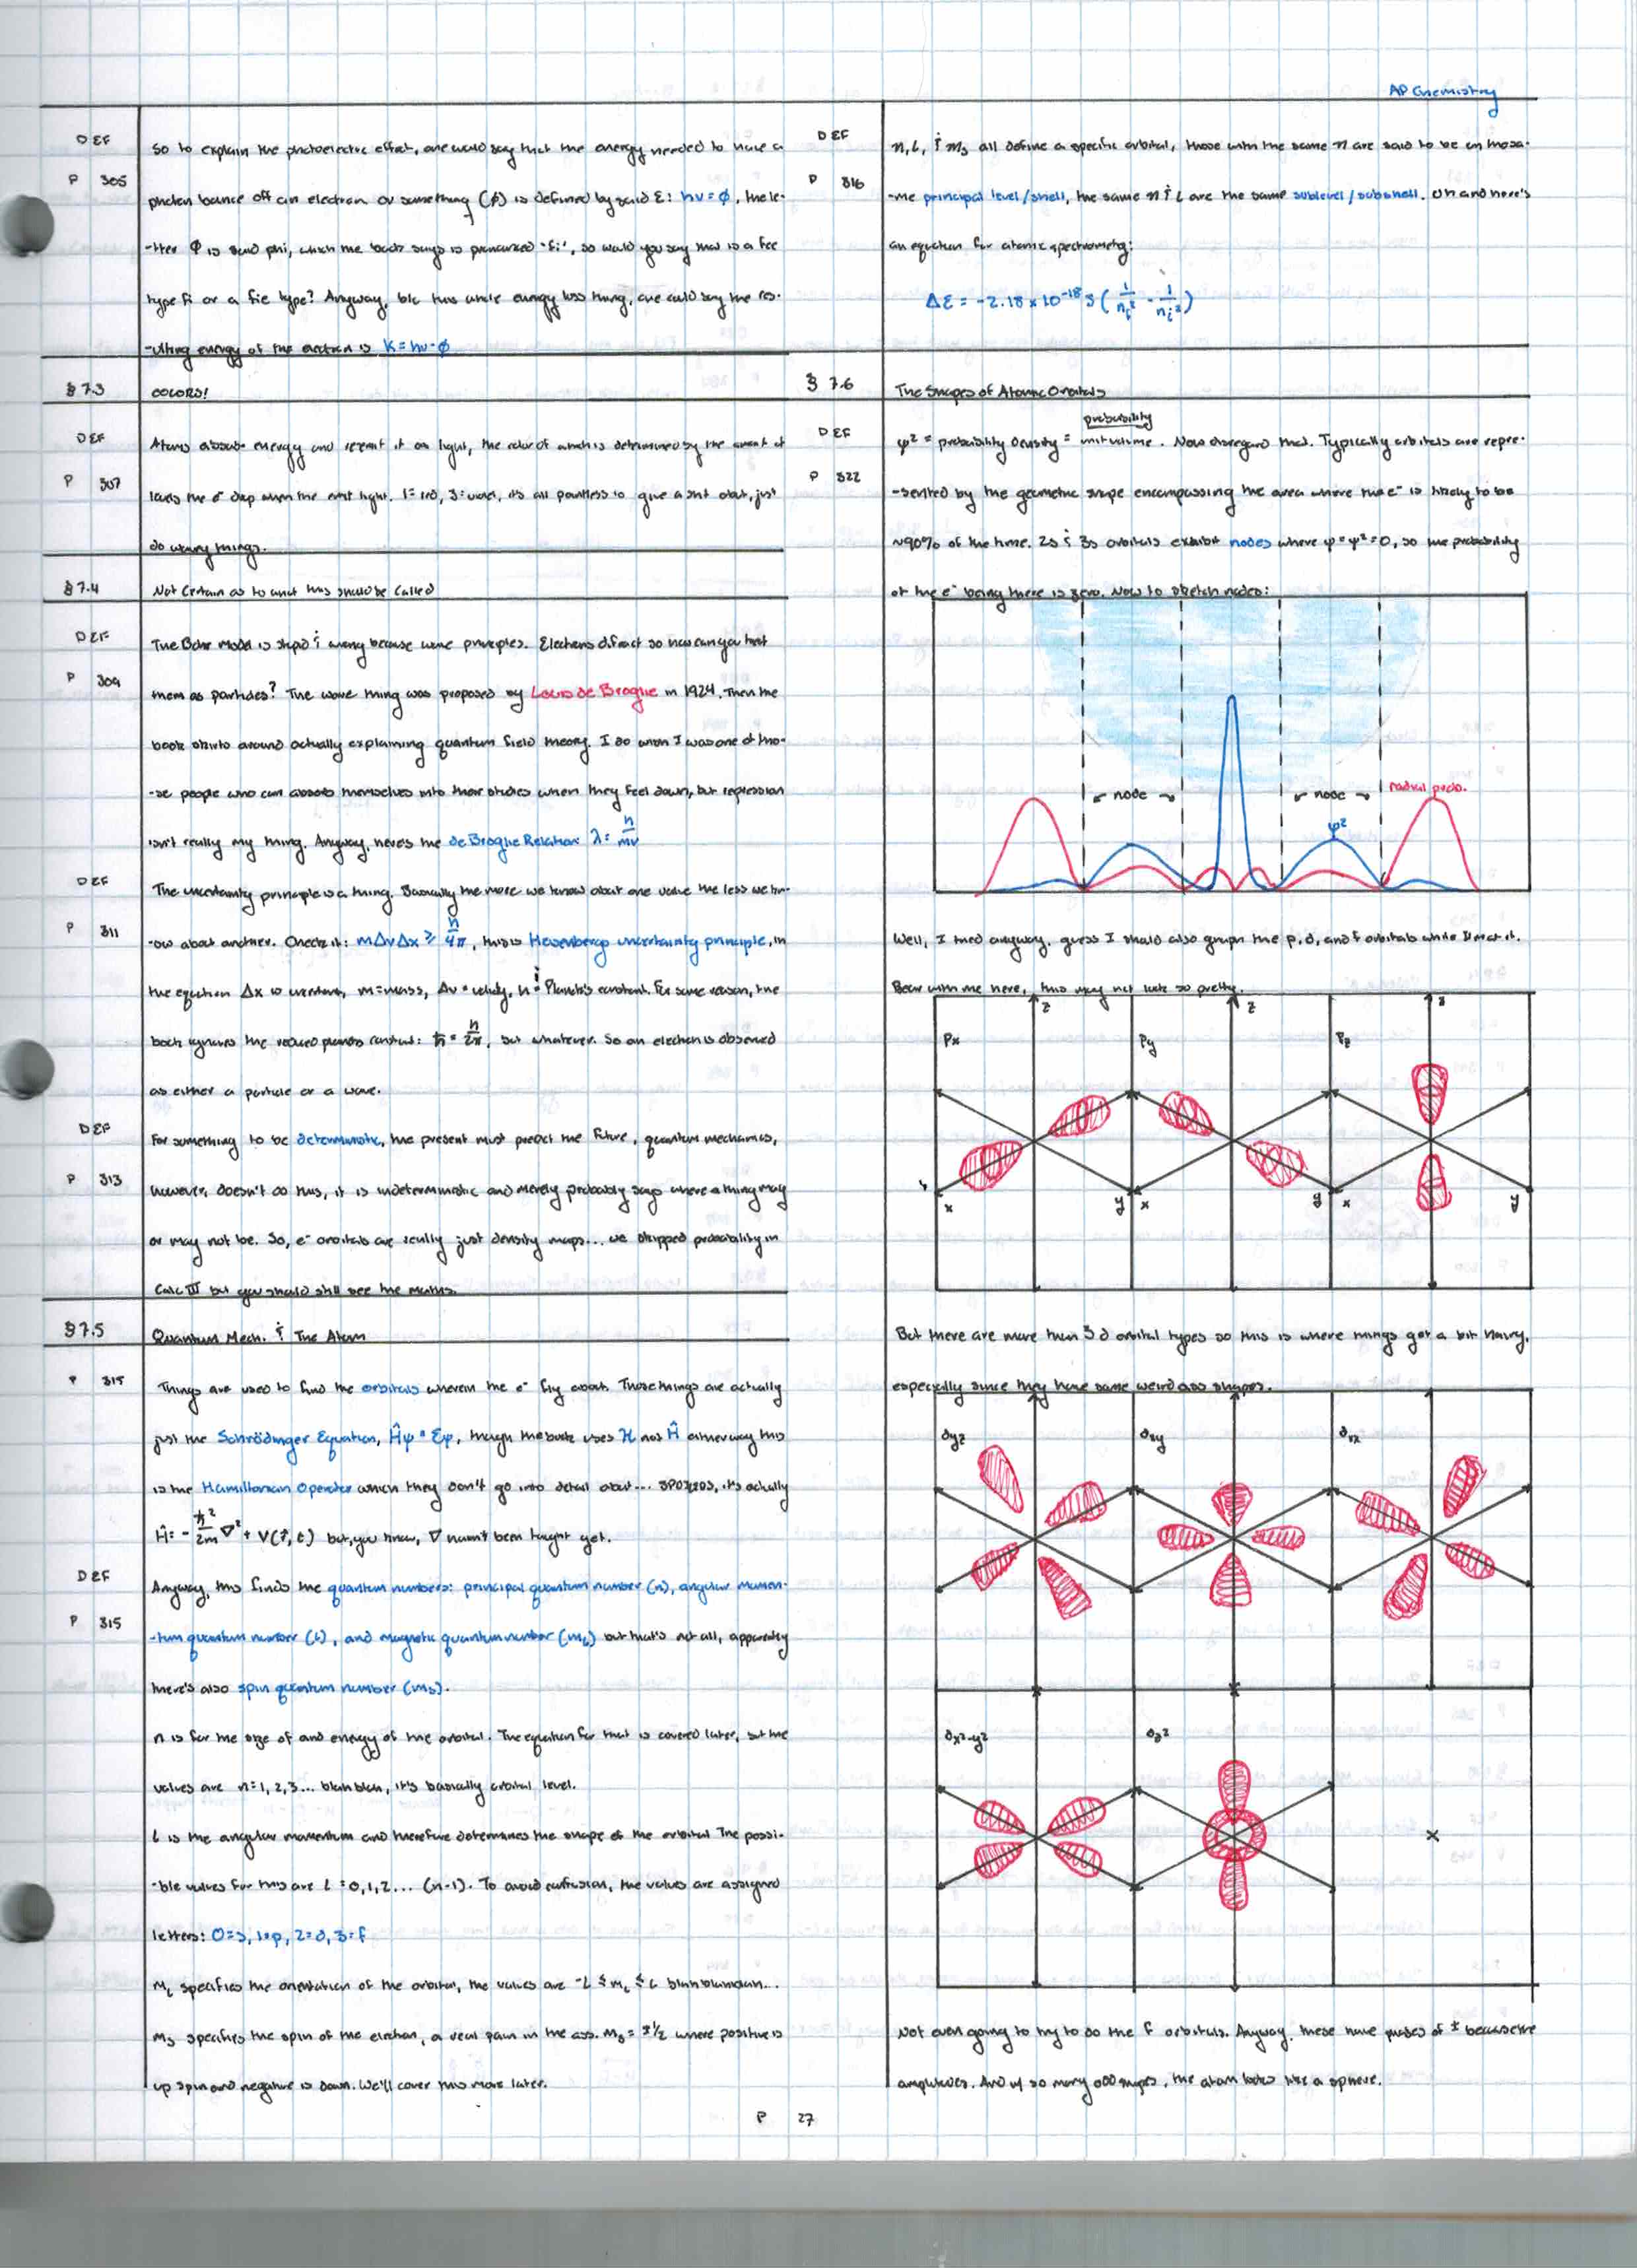 AP Chemistry
DEF
P 305
So to explain the photoelectric effect, one would say that the energy needed to have a
photon bounce off an electron or something (φ) is defined by said E: hν = φ, the le-
-tter φ is said phi, which the book says is pronounced "fi", so would you say that is a fee
type fi or a fie type? Anyway, b/c this whole energy loss thing, one could say the res-
-ulting energy of the electron is K = hν - φ
§ 7.3
COLORS!
DEF
P 307
Atoms absorb energy and reemit it as light, the color of which is determined by the amount of
levels the e⁻ drop when the emit light. 1= red, 3= violet, it's all pointless to give a shit about, just
do wavy things.
§ 7.4
Not Certain as to what this should be Called
DEF
P 309
The Bohr Model is stupid & wrong because wave principles. Electrons difract so how can you treat
them as particles? The wave thing was proposed by Louis de Broglie in 1924. Then the
book skirts around actually explaining quantum field theory. I do wish I was one of tho-
-se people who can absorb themselves into their studies when they feel down, but repression
isn't really my thing. Anyway, here's the de Broglie Relation: λ = h/mv
DEF
P 311
The uncertainty principle is a thing. Basically the more we know about one value the less we kn-
-ow about another. Check it: mΔvΔx ≥ h/4π, this is Heisenberg's uncertainty principle, in
the equation Δx is uncertainty, m=mass, Δv = velocity, h = Planck's constant. For some reason, the
book ignores the reduced plancks constant: ħ = h/2π, but whatever. So an electron is observed
as either a particle or a wave.
DEF
P 313
For something to be deterministic, the present must predict the future, quantum mechanics,
however, doesn't do this, it is indeterministic and merely probably says where a thing may
or may not be. So, e⁻ orbitals are really just density maps... we skipped probability in
Calc III but you should still see the maths.
§ 7.5
Quantum Mech. & The Atom
P 315
Things are used to find the orbitals wherein the e⁻ fly about. Those things are actually
just the Schrödinger Equation, Ĥψ = Eψ, though the book uses H not Ĥ either way this
is the Hamiltonian Operator which they don't go into detail about... SPOILERS, it's actually
Ĥ = -ħ²/2m ∇² + V(r,t) but, you know, ∇ hasn't been taught yet.
DEF
P 315
Anyway, this finds the quantum numbers: principal quantum number (n), angular momen-
-tum quantum number (l), and magnetic quantum number (mₗ) but that's not all, apparently
there's also spin quantum number (mₛ).
n is for the size of and energy of the orbital. The equation for that is covered later, but the
values are n=1, 2, 3... blah blah, it's basically orbital level.
l is the angular momentum and therefore determines the shape of the orbital The possi-
-ble values for this are l = 0, 1, 2... (n-1). To avoid confusion, the values are assigned
letters: 0=s, 1=p, 2=d, 3=f
mₗ specifies the orientation of the orbital, the values are -l ≤ mₗ ≤ l blah blah blah...
mₛ specifies the spin of the electron, a real pain in the ass. mₛ = ±½ where positive is
up spin and negative is down. We'll cover this more later.
DEF
P 316
n, l, & mₛ all define a specific orbital, those with the same n are said to be in the sa-
-me principal level/shell, the same n & l are the same sublevel/subshell. Oh and here's
an equation for atomic spectrometry:
ΔE = -2.18 × 10⁻¹⁸ J (1/n_f² - 1/n_i²)
§ 7.6
The Shapes of Atomic Orbitals
DEF
P 322
ψ² = probability density = probability/unit volume. Now disregard that. Typically orbitals are repre-
-sented by the geometric shape encompassing the area where the e⁻ is likely to be
~90% of the time. 2s & 3s orbitals exhibit nodes where ψ = ψ² = 0, so the probability
of the e⁻ being there is zero. Now to sketch nodes:
node
node
radial prob.
ψ²
Well, I tried anyway. guess I should also graph the p, d, and f orbitals while I'm at it.
Bear with me here, this may not look so pretty.
z
z
z
Px
Py
Pz
x
y
x
y
x
y
But there are more than 3 d orbital types so this is where things get a bit hairy,
especially since they have some weird ass shapes.
dyz
dxy
dxz
dx²-y²
dz²
Not even going to try to do the f orbitals. Anyway, these have phases of ± because
amplitudes. And w/ so many odd shapes, the atom looks like a sphere.
P 27